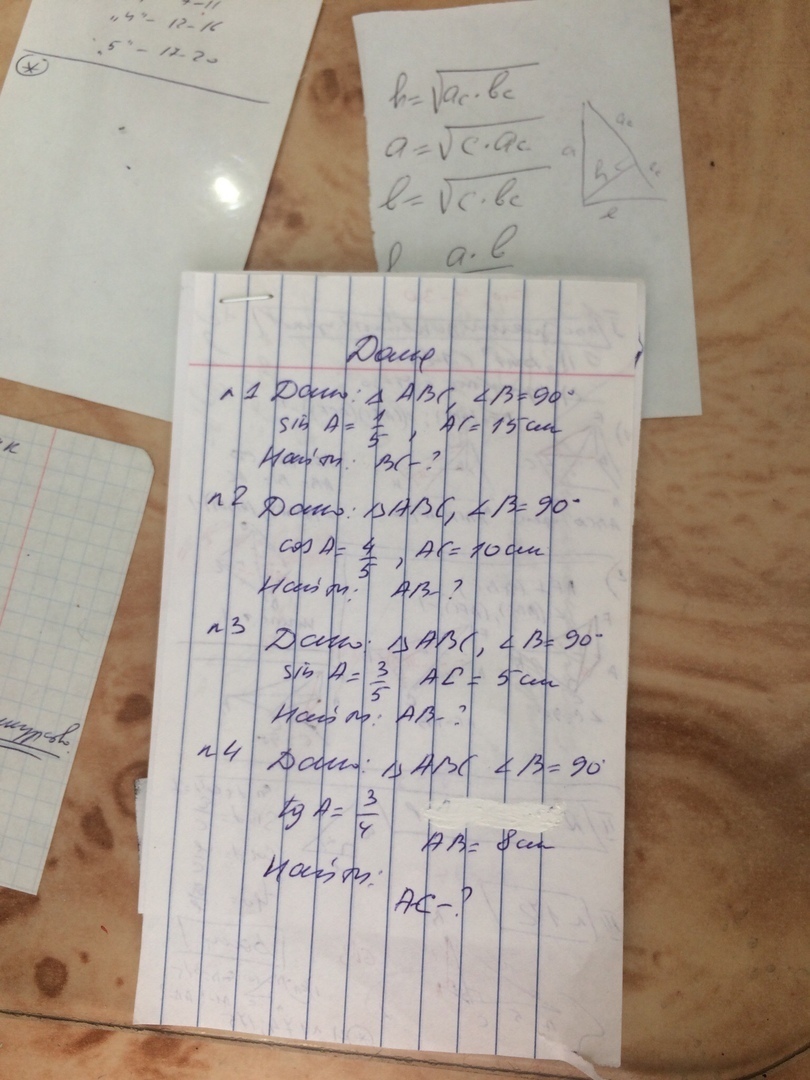 "4" - 12-16
"5" - 17-20
*
h = √ac · bc
a = √c · ac
b = √c · bc
a · b
a
ac
h
Дома
n 1 Дано: △ ABC, ∠B = 90°
sin A = 1/5, AC = 15 см
Найти: BC - ?
n 2 Дано: △ ABC, ∠B = 90°
cos A = 4/5, AC = 10 см
Найти: AB - ?
n 3 Дано: △ ABC, ∠B = 90°
sin A = 3/5 AC = 5 см
Найти: AB - ?
n 4 Дано: △ ABC ∠B = 90°
tg A = 3/4
AB = 8 см
Найти:
AC - ?